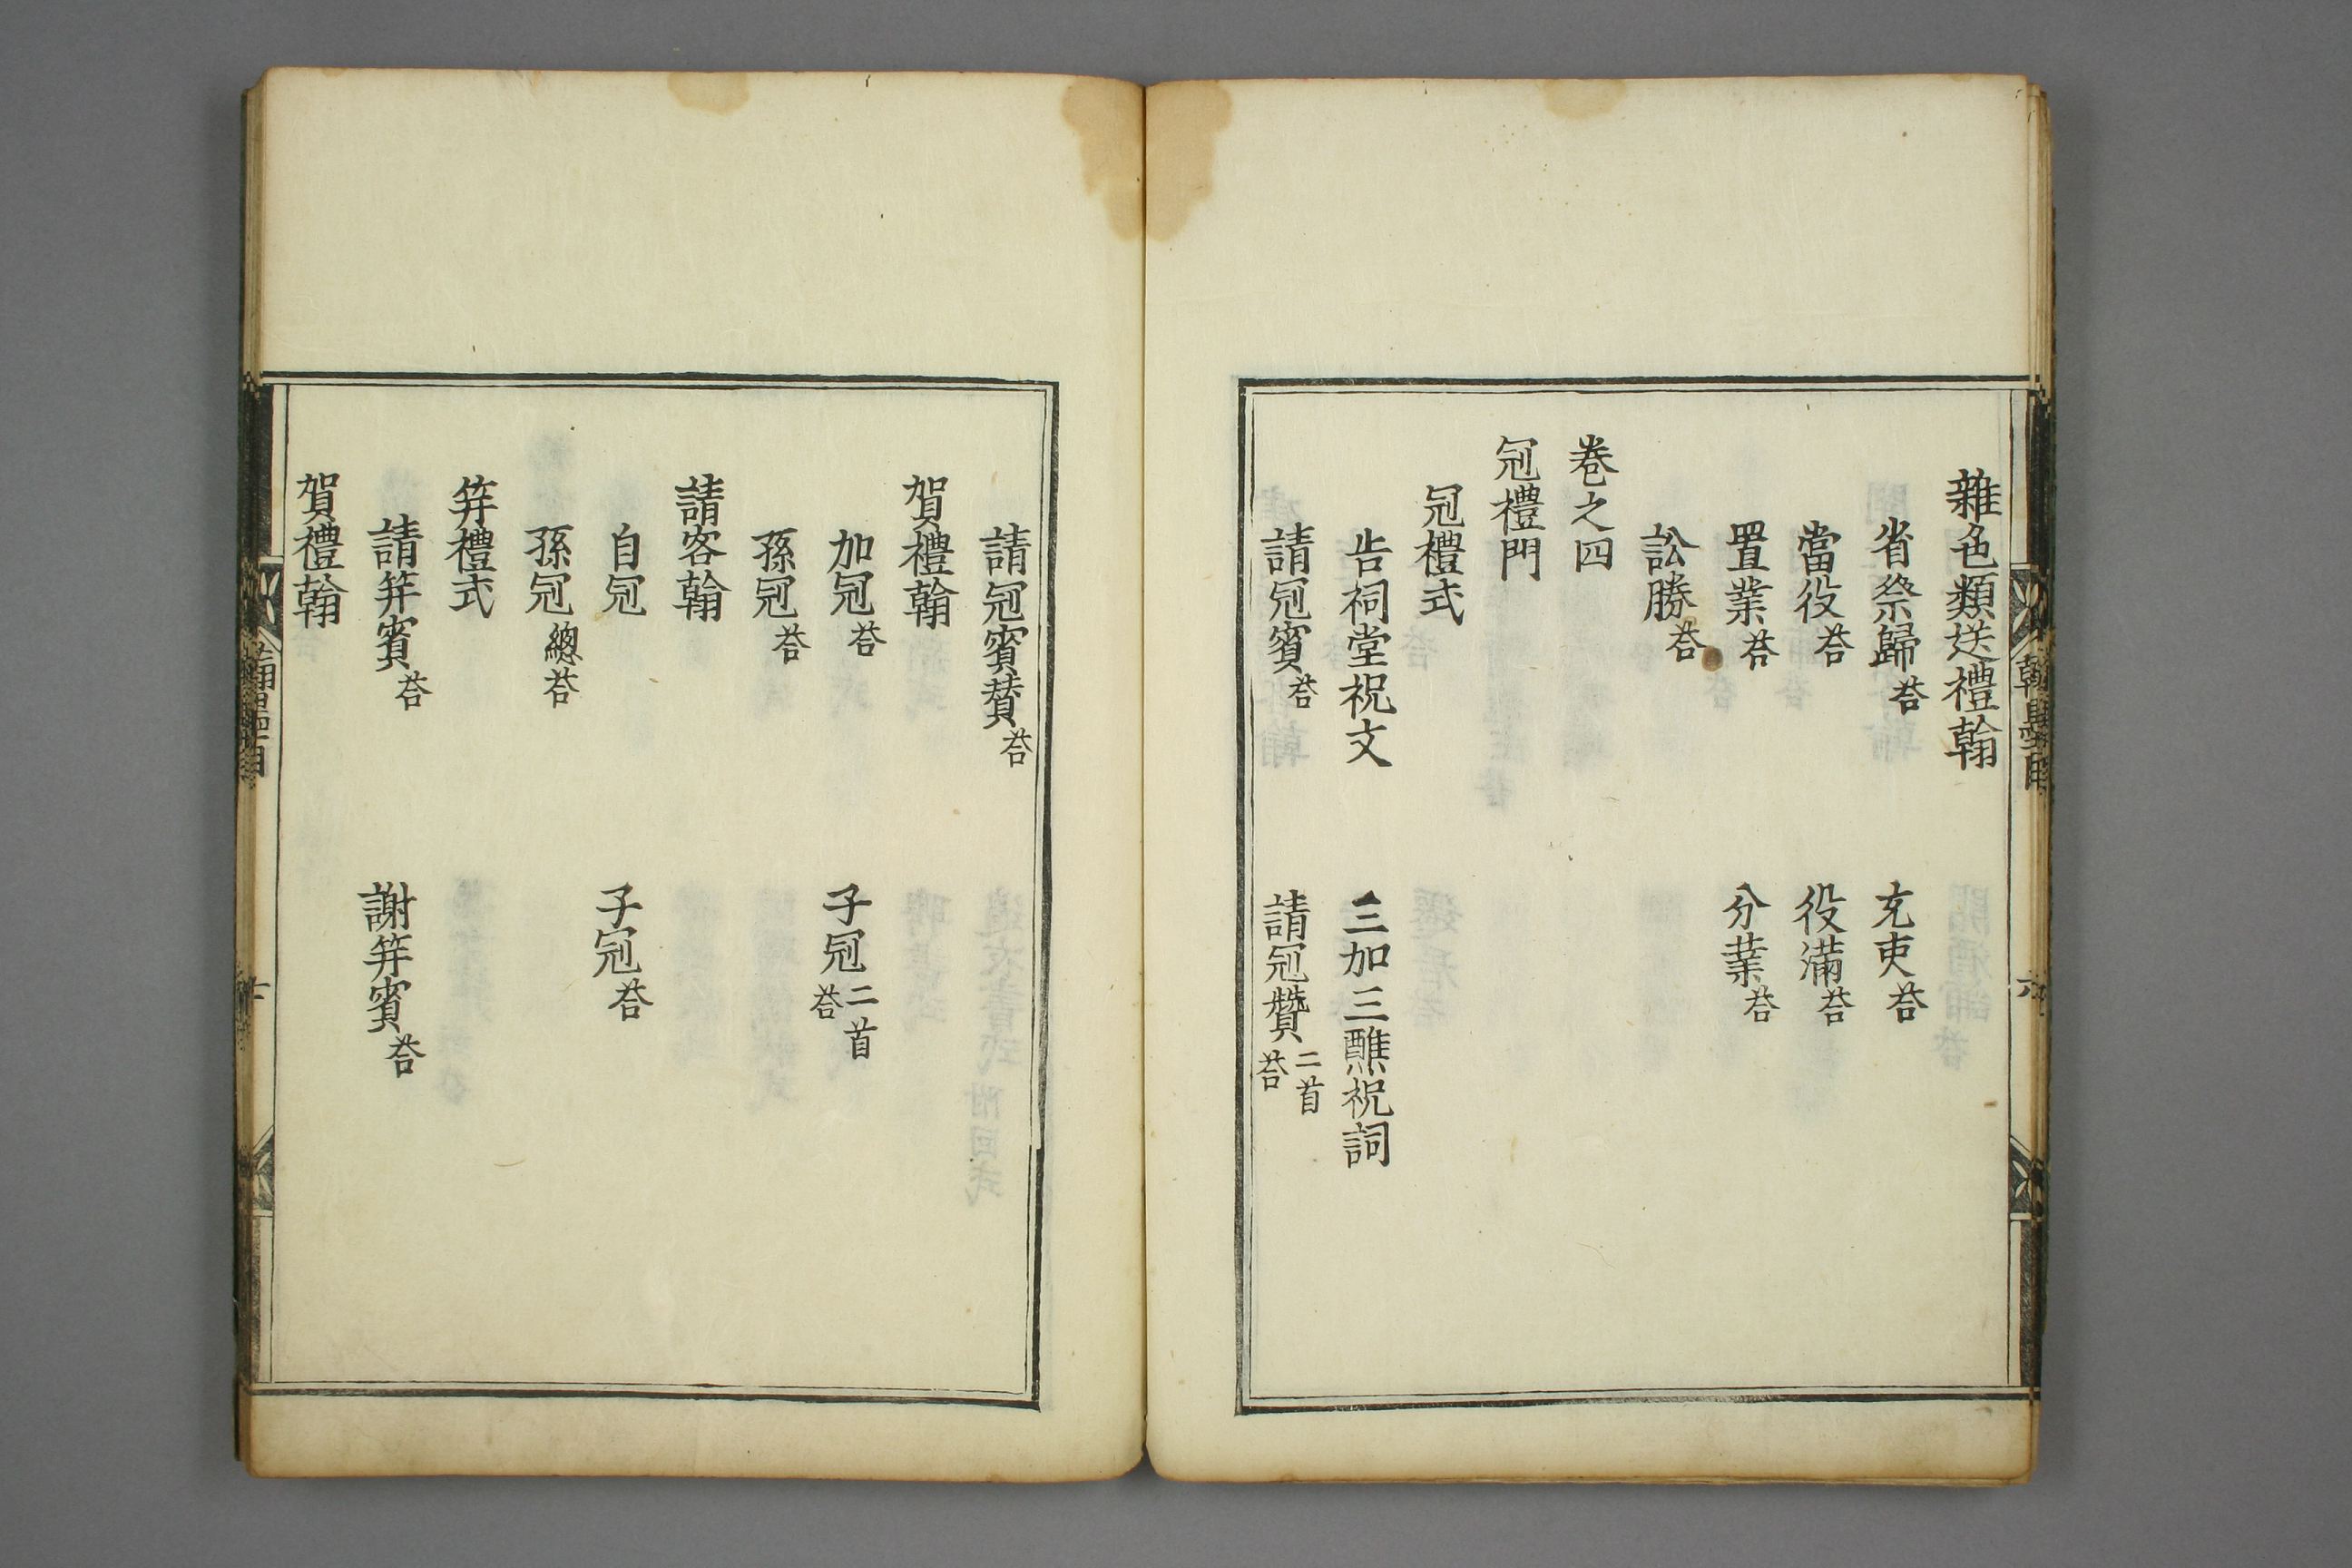 雜色類送禮翰
省祭歸荅　充吏荅
當役荅　役滿荅
置業荅　分業荅
訟勝荅
卷之四
冠禮門
冠禮式
告祠堂祝文　三加三醮祝詞
請冠賓荅　請冠贊二首荅
請冠賓賛荅
賀禮翰
加冠荅　子冠二首荅
孫冠荅
請客翰
自冠　子冠荅
孫冠總荅
笄禮式
請笄賓荅　謝笄賓荅
賀禮翰